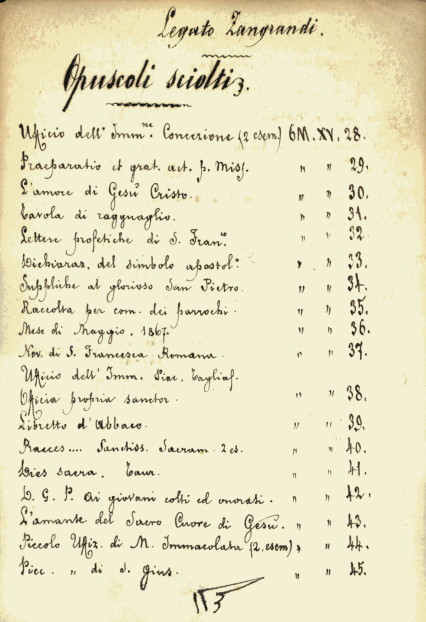 Legato Zangrandi.
Opuscoli sciolti
Ufficio dell' Imm.ne Concezione (2 esem.) 6M. XV. 28.
Praeparatio et grat. act. p. Miss. " " 29.
L'amore di Gesù Cristo. " " 30.
Tavola di ragguaglio. " " 31.
Lettere profetiche di S. Fran.o " " 32
Dichiaraz. del simbolo apostol.o " " 33.
Suppliche al glorioso San Pietro. " " 34.
Raccolta per com. dei parrochi. " " 35.
Mese di Maggio. 1867. " " 36.
Nov. di S. Francesca Romana. " " 37.
Ufficio dell' Imm. Piac. Tagliaf.
Officia propria sanctor. " " 38.
Libretto d'Abbaco. " " 39.
.... Sanctiss. Sacram. 2 es. " " 40.
Dies sacra. Taur. " " 41.
D. G. P. Ai giovani colti ed onorati. " " 42.
L'amante del Sacro Cuore di Gesù. " " 43.
Piccolo Uffiz. di M. Immacolata (2. esem) " " 44.
Picc. " di S. Gius. " " 45.